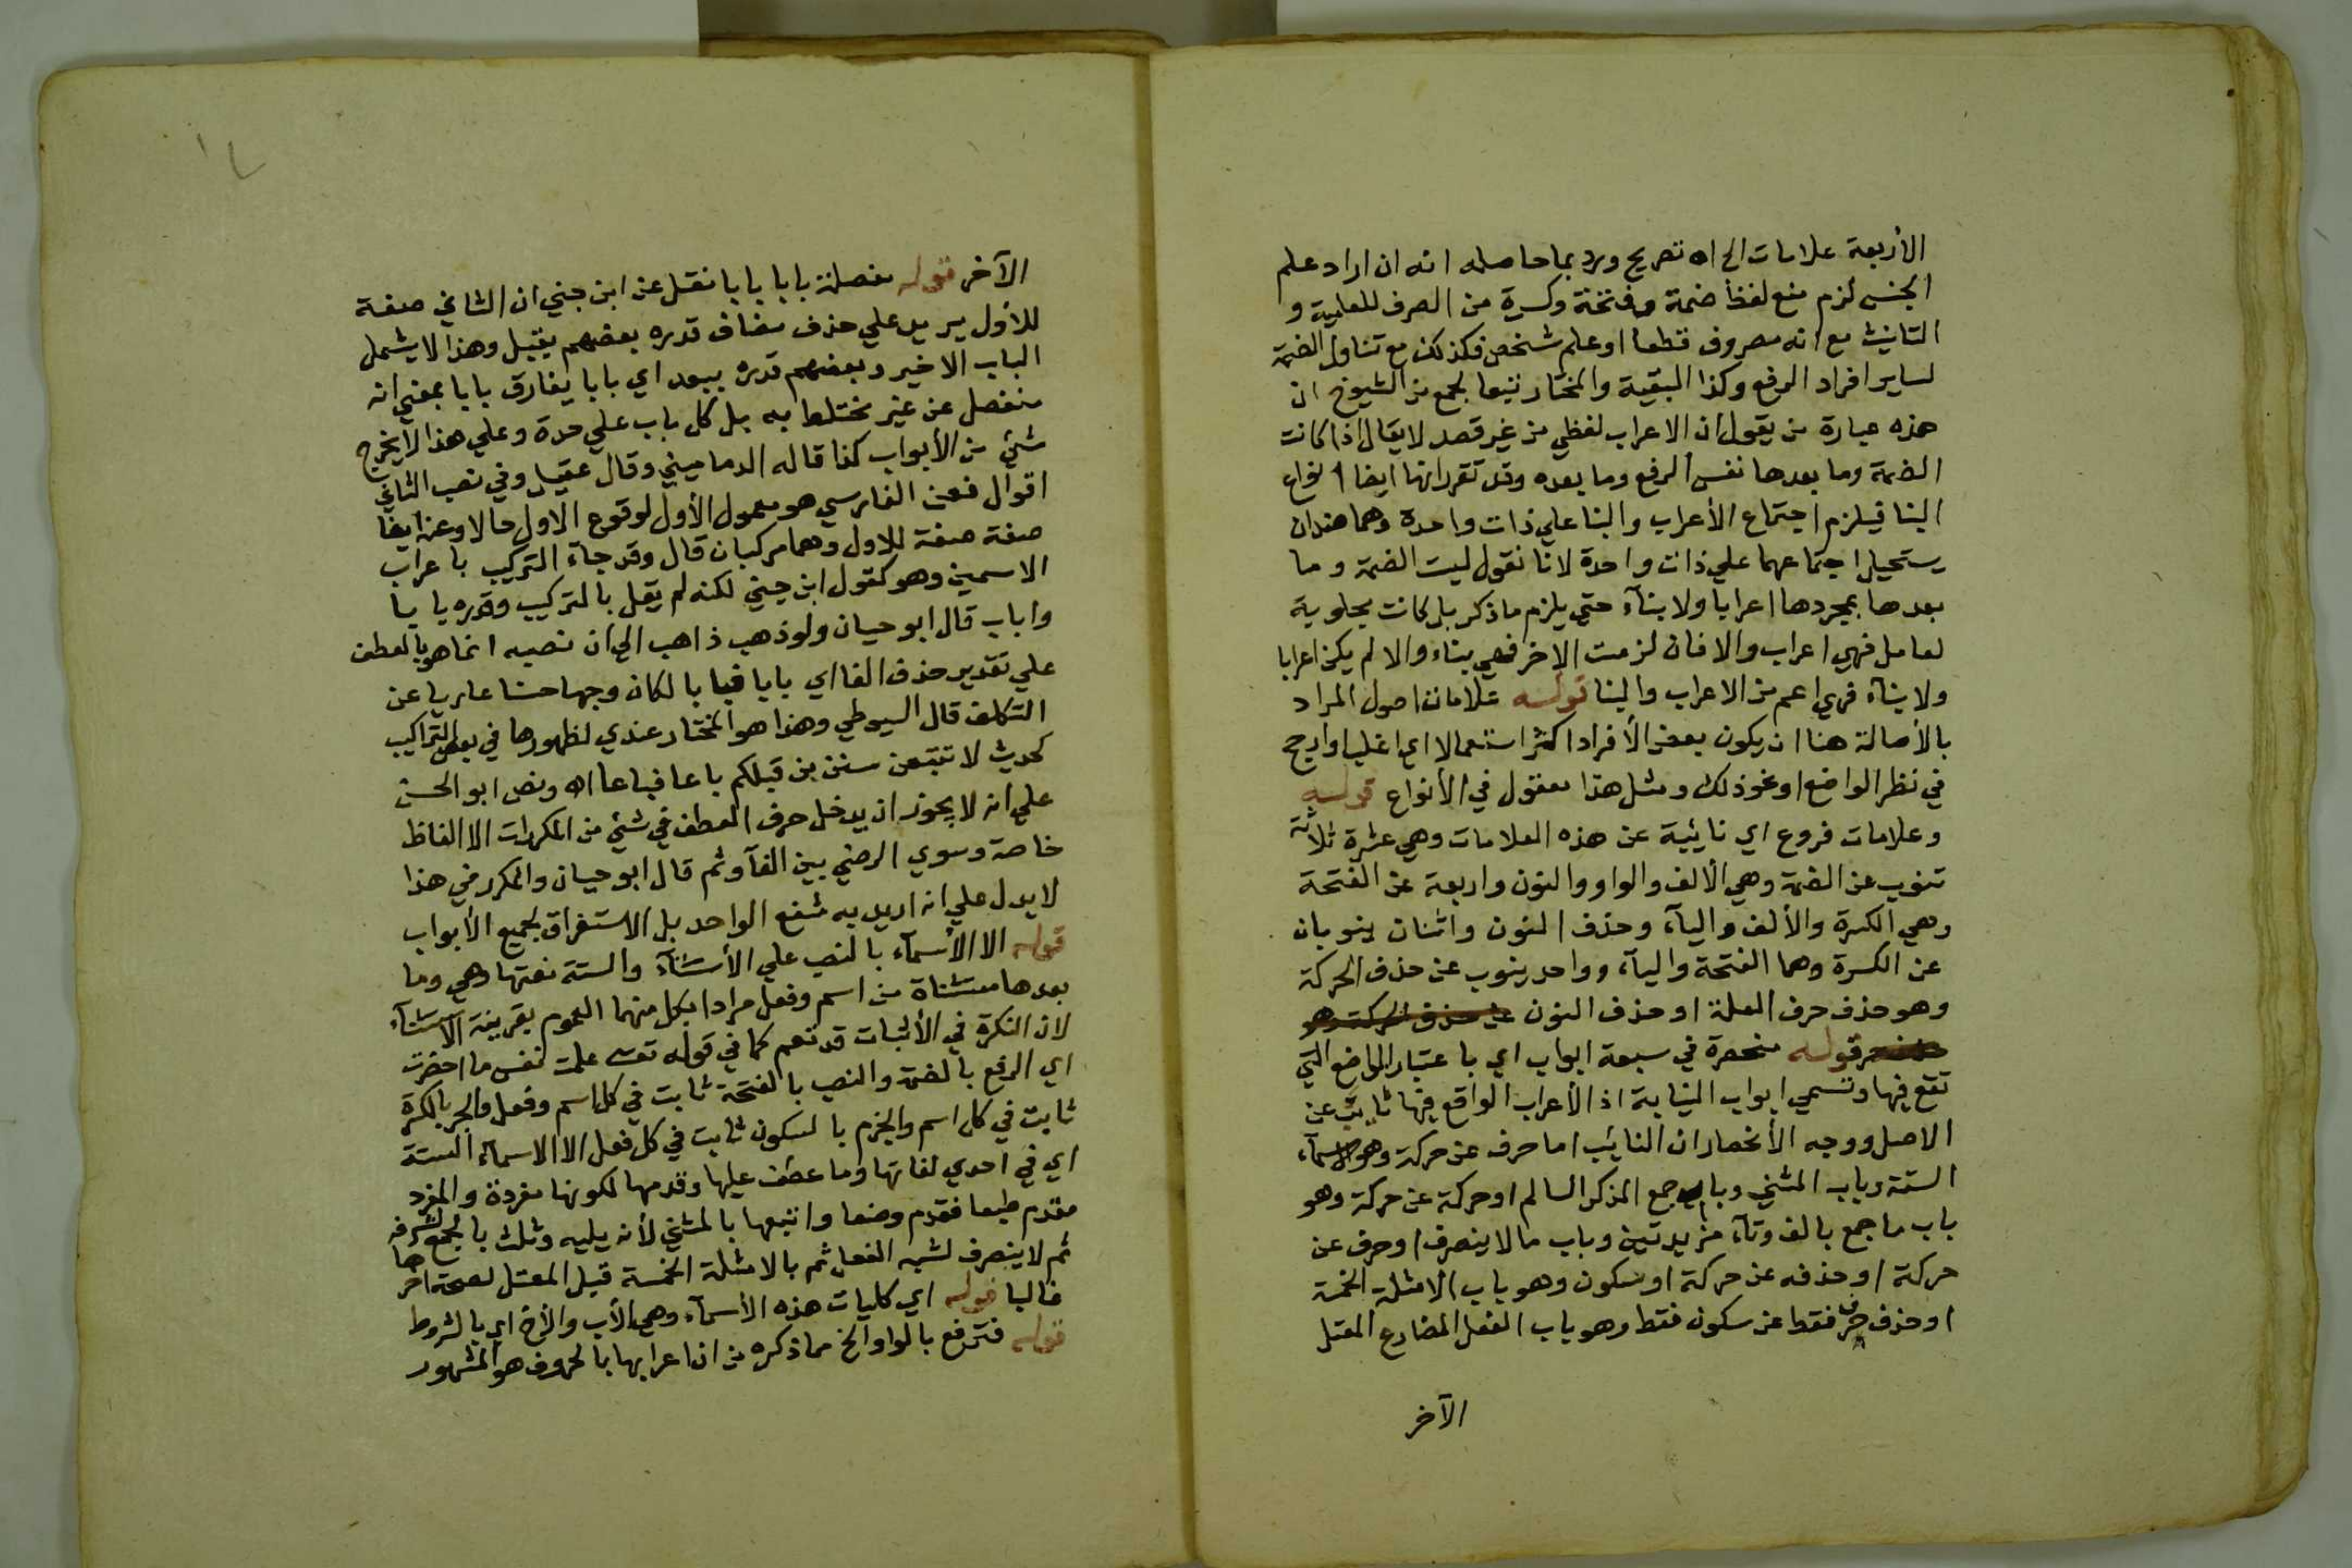 الأربعة علامات الخ اه تصريح ورد بما حاصله انه ان اراد علم
الجنس لزم منع لفظ ضمة وفتحة وكسرة من الصرف للعلمية و
التانيث مع انه مصروف قطعا او علم شخص فكذلك مع تناول الضمة
لساير افراد الرفع وكذا البقية والمختار تبعا لجمع من الشيوخ ان
هذه عبارة من يقول ان الاعراب لفظي من غير قصد لا يقال اذا كانت
الضمة وما بعدها نفس الرفع وما بعده وقد تقرر انها ايضا انواع
البنا فيلزم اجتماع الأعراب والبنا علي ذات واحدة وهما ضدان
يستحيل اجتماعهما علي ذات واحدة لانا نقول ليست الضمة وما
بعدها بمجردها اعرابا ولا بنآء حتي يلزم ما ذكر بل كانت مجلوبة
لعامل فهي اعراب والا فان لزمت الاخر فهي بناء والا لم يكن اعرابا
ولا بناء فهي اعم من الاعراب والبنا قوله علامات اصول المراد
بالأصالة هنا ان يكون بعض الأفراد اكثر استعمالا اي اغلب او ارجح
في نظر الواضع او نحو ذلك ومثل هذا معقول في الأنواع قوله
وعلامات فروع اي نائبة عن هذه العلامات وهي عشرة ثلاثة
تنوب عن الضمة وهي الألف والواو والنون واربعة عن الفتحة
وهي الكسرة والألف واليآء وحذف النون واثنان ينوبان
عن الكسرة وهما الفتحة واليآء وواحد ينوب عن حذف الحركة
وهو حذف حرف العلة او حذف النون عن حذف الحركة وهو
قوله منحصرة في سبعة ابواب اي باعتبار المواضع التي
تقع فيها وتسمي ابواب النيابة اذ الأعراب الواقع فيها نايب عن
الاصل ووجه الأنحصار ان النائب اما حرف عن حركة وهو الاسمآء
الستة وباب المثني وباب جمع المذكر السالم او حركة عن حركة وهو
باب ما جمع بالف وتآء مزيدتين وباب ما لا ينصرف او حرف عن
حركة او حذفه عن حركة او سكون وهو باب الامثلة الخمسة
او حذف حرف فقط عن سكون فقط وهو باب الفعل المضارع المعتل
الآخر
الآخر قوله مفصلة بابا بابا نقل عن ابن جني ان الثاني صفة
للأول يريد علي حذف مضاف قدره بعضهم بقبل وهذا لا يشمل
الباب الاخير وبعضهم قدره ببعد اي بابا يفارق بابا بمعني انه
منفصل عن غير مختلط به بل كل باب علي حدة وعلي هذا لا يخرج
شئ من الأبواب كذا قاله الدماميني وقال عقيل وفي نصب الثاني
اقوال فعن الفارسي هو معمول الأول لوقوع الاول حالا وعنه ايضا
صفة صفة للاول وهما مركبان قال وقد جآء التركيب باعراب
الاسمين وهو كقول ابن جني لكنه لم يقل بالتركيب وقدره بابا
واباب قال ابو حيان ولو ذهب ذاهب الي ان نصبه انما هو بالعطف
علي تقدير حذف الفا اي بابا فبابا لكان وجها حسنا عاريا عن
التكلف قال السيوطي وهذا هو المختار عندي لظهورها في بعض التراكيب
كحديث لا تتبعن سنن من قبلكم باعا فباعا اه ونص ابو الحسن
علي انه لا يجوز ان يدخل حرف العطف في شئ من المكررات الا الفاظ
خاصة وسوي الرضي بين الفآ وثم قال ابو حيان والمكرر في هذا
لا يدل علي انه اريد به شفع الواحد بل الاستغراق لجميع الأبواب
قوله الا الأسمآء بالنصب علي الأستثنآء والستة نعتها وهي وما
بعدها مستثناة من اسم وفعل مرادا بكل منهما العموم بقرينة الآستثنآء
لان النكرة في الأثبات قد تعم كما في قوله تعسى علمت نفس ما احضرت
اي الرفع بالضمة والنصب بالفتحة ثابت في كل اسم وفعل والجر بالكسرة
ثابت في كل اسم والجزم بالسكون ثابت في كل فعل الا الاسمآء الستة
اي في احدي لغاتها وما عطف عليها وقدمها لكونها مفردة والمفرد
مقدم طبعا فقدم وضعا واتبعها بالمثني لأنه يليه وثلث بالجمع لشرفه
ثم لا ينصرف لشبه الفعل ثم بالامثلة الخمسة قبل المعتل لصحة آخرها
غالبا قوله اي كليات هذه الأسمآء وهي الأب والأخ اي بالشروط
قوله فترفع بالواو الخ مما ذكره من ان اعرابها بالحروف هو المشهور